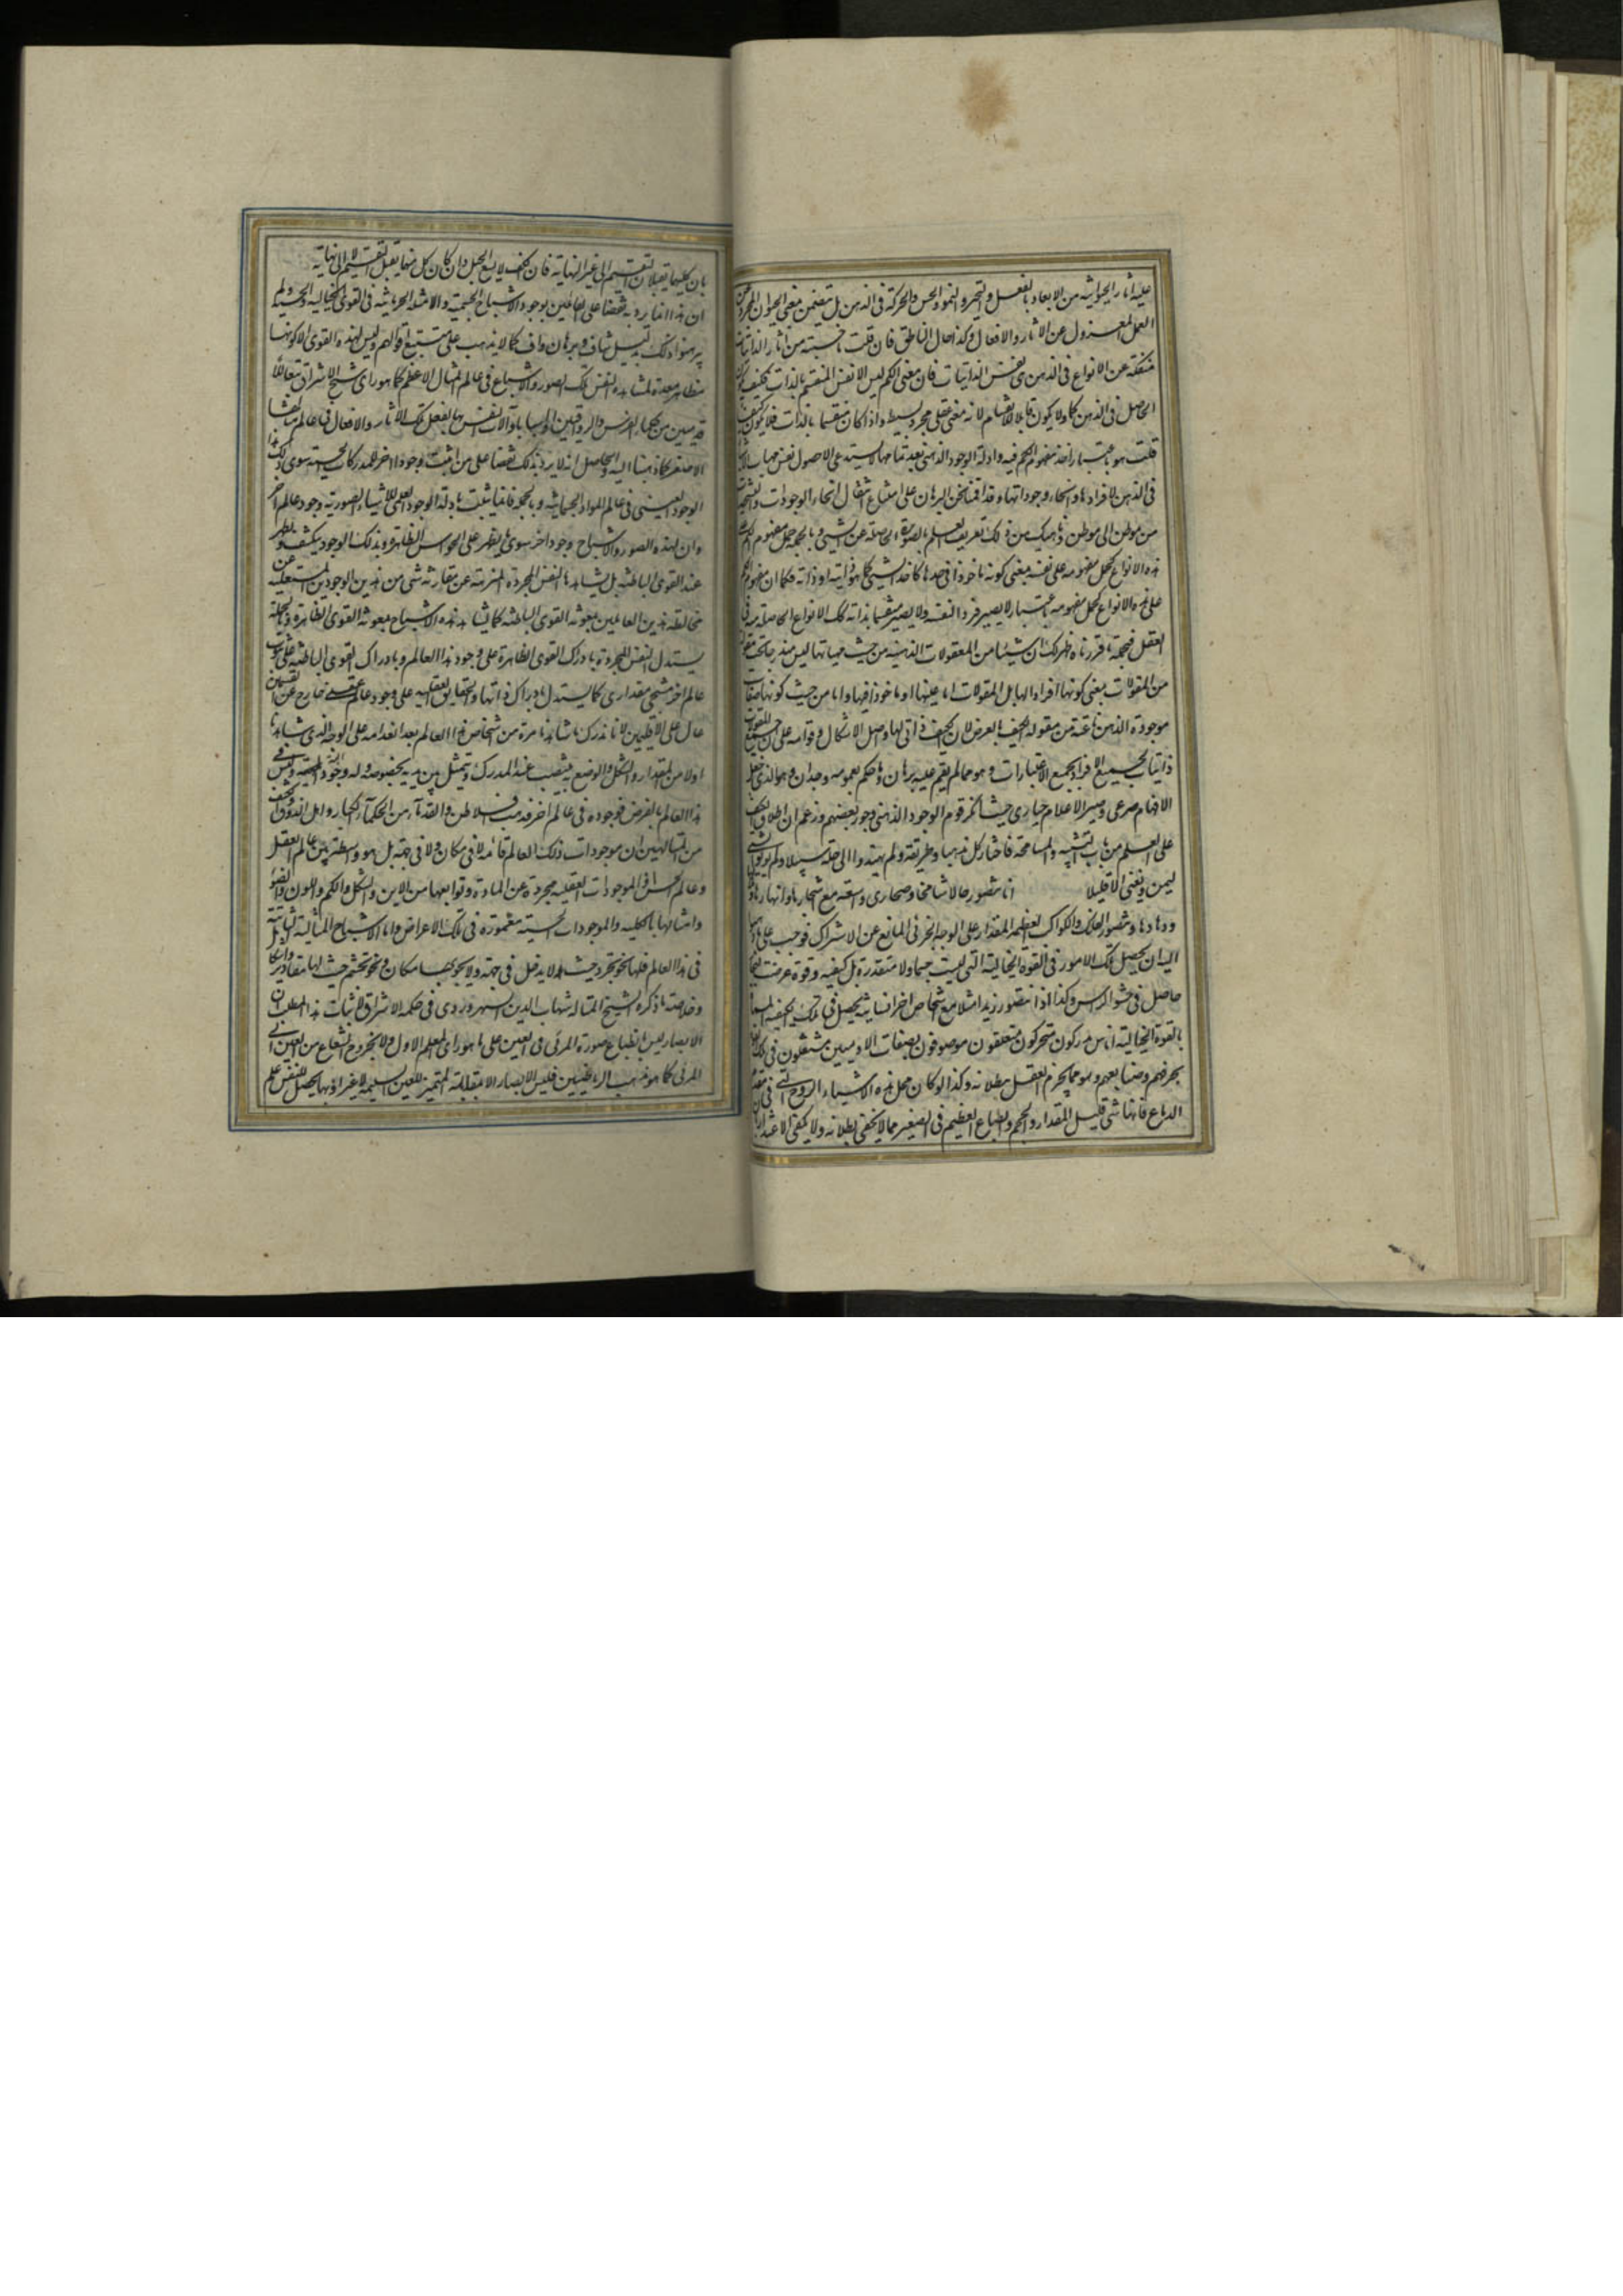 عليه آثار الحيوانية من الابعاد بالفعل والتحيز والنمو والحس والحركة فى الذهن بل يتضمن معنى الحيوان المجرد عن
العمل المعزول عن الاثار والافعال وكذا حال الناطق فان قلت ما حسبته من آثار الذاتيات
منفكة عن الانواع فى الذهن هى نفس الذاتيات فان معنى الكم ليس الا نفس المنقسم بالذات فكيف يكون
الحاصل فى الذهن كما ولا يكون قابلا للانقسام لانه معنى عقلى مجرد بسيط واذا كان منقسما بالذات فلا يكون كيف
قلت هو باعتبار اخذ مفهوم الكم فيه وادلة الوجود الذهنى بعد تمامها لا يستدعى الا حصول نفس مهيات الاشياء
فى الذهن لا افرادها وانحاء وجوداتها وقد اقمنا نحن البرهان على امتناع انتقال انحاء الوجودات والتشخصات
من موطن الى موطن وناهيك من ذلك تعريف العلم بالصورة الحاصلة عن الشىء وبالجملة حمل مفهوم الكم على
هذه الانواع كحمل مفهومه على نفسه بمعنى كونه ماخوذا فى حدها كاخذ الشىء فيما هو ذاتيه او ذاته فكما ان مفهوم الكم
على هذه الانواع كحمل مفهومه باعتبار لا يصير فردا لنفسه ولا يصير منقسما بذاته كك الانواع الحاصلة منه فى
العقل فجملة ما قررناه ظهر لك ان شيئا من المعقولات الذهنية من حيث مهياتها ليس مندرجا تحت مقولة
من المقولات بمعنى كونها افرادا لها بل المقولات اما عينها او ماخوذة فيها واما من حيث كونها صفات
موجودة الذهن ناعتة من مقولة الكيف بالعرض لا ان الكيف ذاتى لها واصل الاشكال وقوامه على ان جميع المقولات
ذاتيات لجميع الافراد بجميع الاعتبارات وهو مما لم يقم عليه برهان وما حكم بعمومه وجدان وهو الذى جعل
الافهام صرعى وصير الاعلام حيارى حيث انكر قوم الوجود الذهنى وجوز بعضهم وزعم ان اطلاق الكيف
على العلم من باب التشبيه والمسامحة فاختار كل مذهبا وطريقة ولم يهتدوا الى حله سبيلا ولم يأتوا بشىء
يسمن ويغنى الا قليلا انا نتصور جبالا شامخا وصحارى واسعة مع اشجارها وانهارها
ووهادها ونتصور الفلك والكواكب العظيمة المقدار على الوجه الجزئى المانع عن الاشتراك فوجب على ما ذهبوا
اليه ان يحصل تلك الامور فى القوة الخيالية التى ليست جسما ولا متقدرة بل كيفية وقوة عرضت لبخار
حاصل فى حشو الراس وكذا اذا نتصور زيدا مثلا مع اشخاص اخر انسانية يحصل فى تلك الكيفية المسماة
بالقوة الخيالية اناس مدركون متحركون متعلقون موصوفون بصفات الآدميين مشتغلون فى تلك القوة
بحرفهم وصنايعهم وهو مما يجزم العقل ببطلانه وكذا لو كان محل هذه الاشياء الروح التى فى مقدم
الدماغ فانها شىء قليل المقدار والحجم وانطباع العظيم فى الصغير مما لا يخفى بطلانه ولا يكفى الاعتذار
بان كليهما يقبلان التقسيم الى غير النهاية فان الكف لا يسع الجبل وان كان كل منهما يقبل التقسيم لا الى نهاية
ان هذا انما يرد به نقضا على القائلين بوجود الاشباح الجسمية والامثلة الجرمانية فى القوى الخيالية والحسية ولم
يبرهنوا ذلك بدليل شاف وبرهان واف كما لا يذهب على متتبع اقوالهم وليس لهذه القوى الا كونها
مظاهر معدة لمشاهدة النفس تلك الصور والاشباح فى عالم المثال الاعظم كما هو راى شيخ الاشراق تبعا للأ
قدمين من حكماء الفرس والرواقيين او اسبابا وآلات للنفس بها يفعل تلك الاثار والافعال فى عالم مثالها
الاصغر كما ذهبنا اليه والحاصل انه لا يرد بذلك نقضا على من اثبت وجودا اخر للمدركات الحسية سوى هذا
الوجود العينى فى عالم المواد الجسمانية وبالجملة فانما يثبت بادلة الوجود العلمى للاشياء الصورية وجود عالم آخر
وان لهذه الصور والاشباح وجودا اخر سوى ما يظهر على الحواس الظاهرة وبذلك الوجود ينكشف ويظهر
عند القوى الباطنة بل يشاهدها النفس المجردة المنزهة عن مقارنة شىء من هذين الوجودين المستعلية عن
مخالطة هذين العالمين بمعونة القوى الباطنة كما يشاهد هذه الاشباح بمعونة القوى الظاهرة وبالجملة
يستدل النفس المجردة بادراك القوى الظاهرة على وجود هذا العالم وبادراك القوى الباطنة على ثبوت
عالم اخر شبحى مقدارى كما يستدل بادراك ذاتها والحقايق العقلية على وجود عالم عقلى خارج عن القسمين
عال على الاقليمين لانا ندرك ما شاهدنا مرة من اشخاص هذا العالم بعد انعدامه على الوجه الذى شاهدناه
اولا من المقدار والشكل والوضع به ينتصب عند المدرك ويتمثل بين يديه بخصوصه وله وجود البتة وليس فى
هذا العالم بالفرض فوجوده فى عالم اخر فذهب افلاطن والقدماء من الحكماء الكبار واهل الذوق والكشف
من المتالهين ان موجودات ذلك العالم قائمة لا فى مكان ولا فى جهة بل هو واسطة بين عالم العقل
وعالم الحس اذ الموجودات العقلية مجردة عن المادة وتوابعها من الاين والشكل والكم واللون والضوء
وامثالها بالكلية والموجودات الحسية مغمورة فى تلك الاعراض واما الاشباح المثالية الثابتة
فى هذا العالم فلها نحو تجرد حيث لا يدخل فى جهة ولا يحويها مكان ونحو تجسم حيث لها مقادير واشكال
وخلاصة ما ذكره الشيخ المتاله شهاب الدين السهروردى فى حكمة الاشراق لاثبات هذا المطلب ان
الابصار ليس بانطباع صورة المرئى فى العين على ما هو راى المعلم الاول ولا بخروج الشعاع من العين الى
المرئى كما هو مذهب الرياضيين فليس الابصار الا بمقابلة المستنير للعين السليمة لا غير اذ بها يحصل للنفس علم